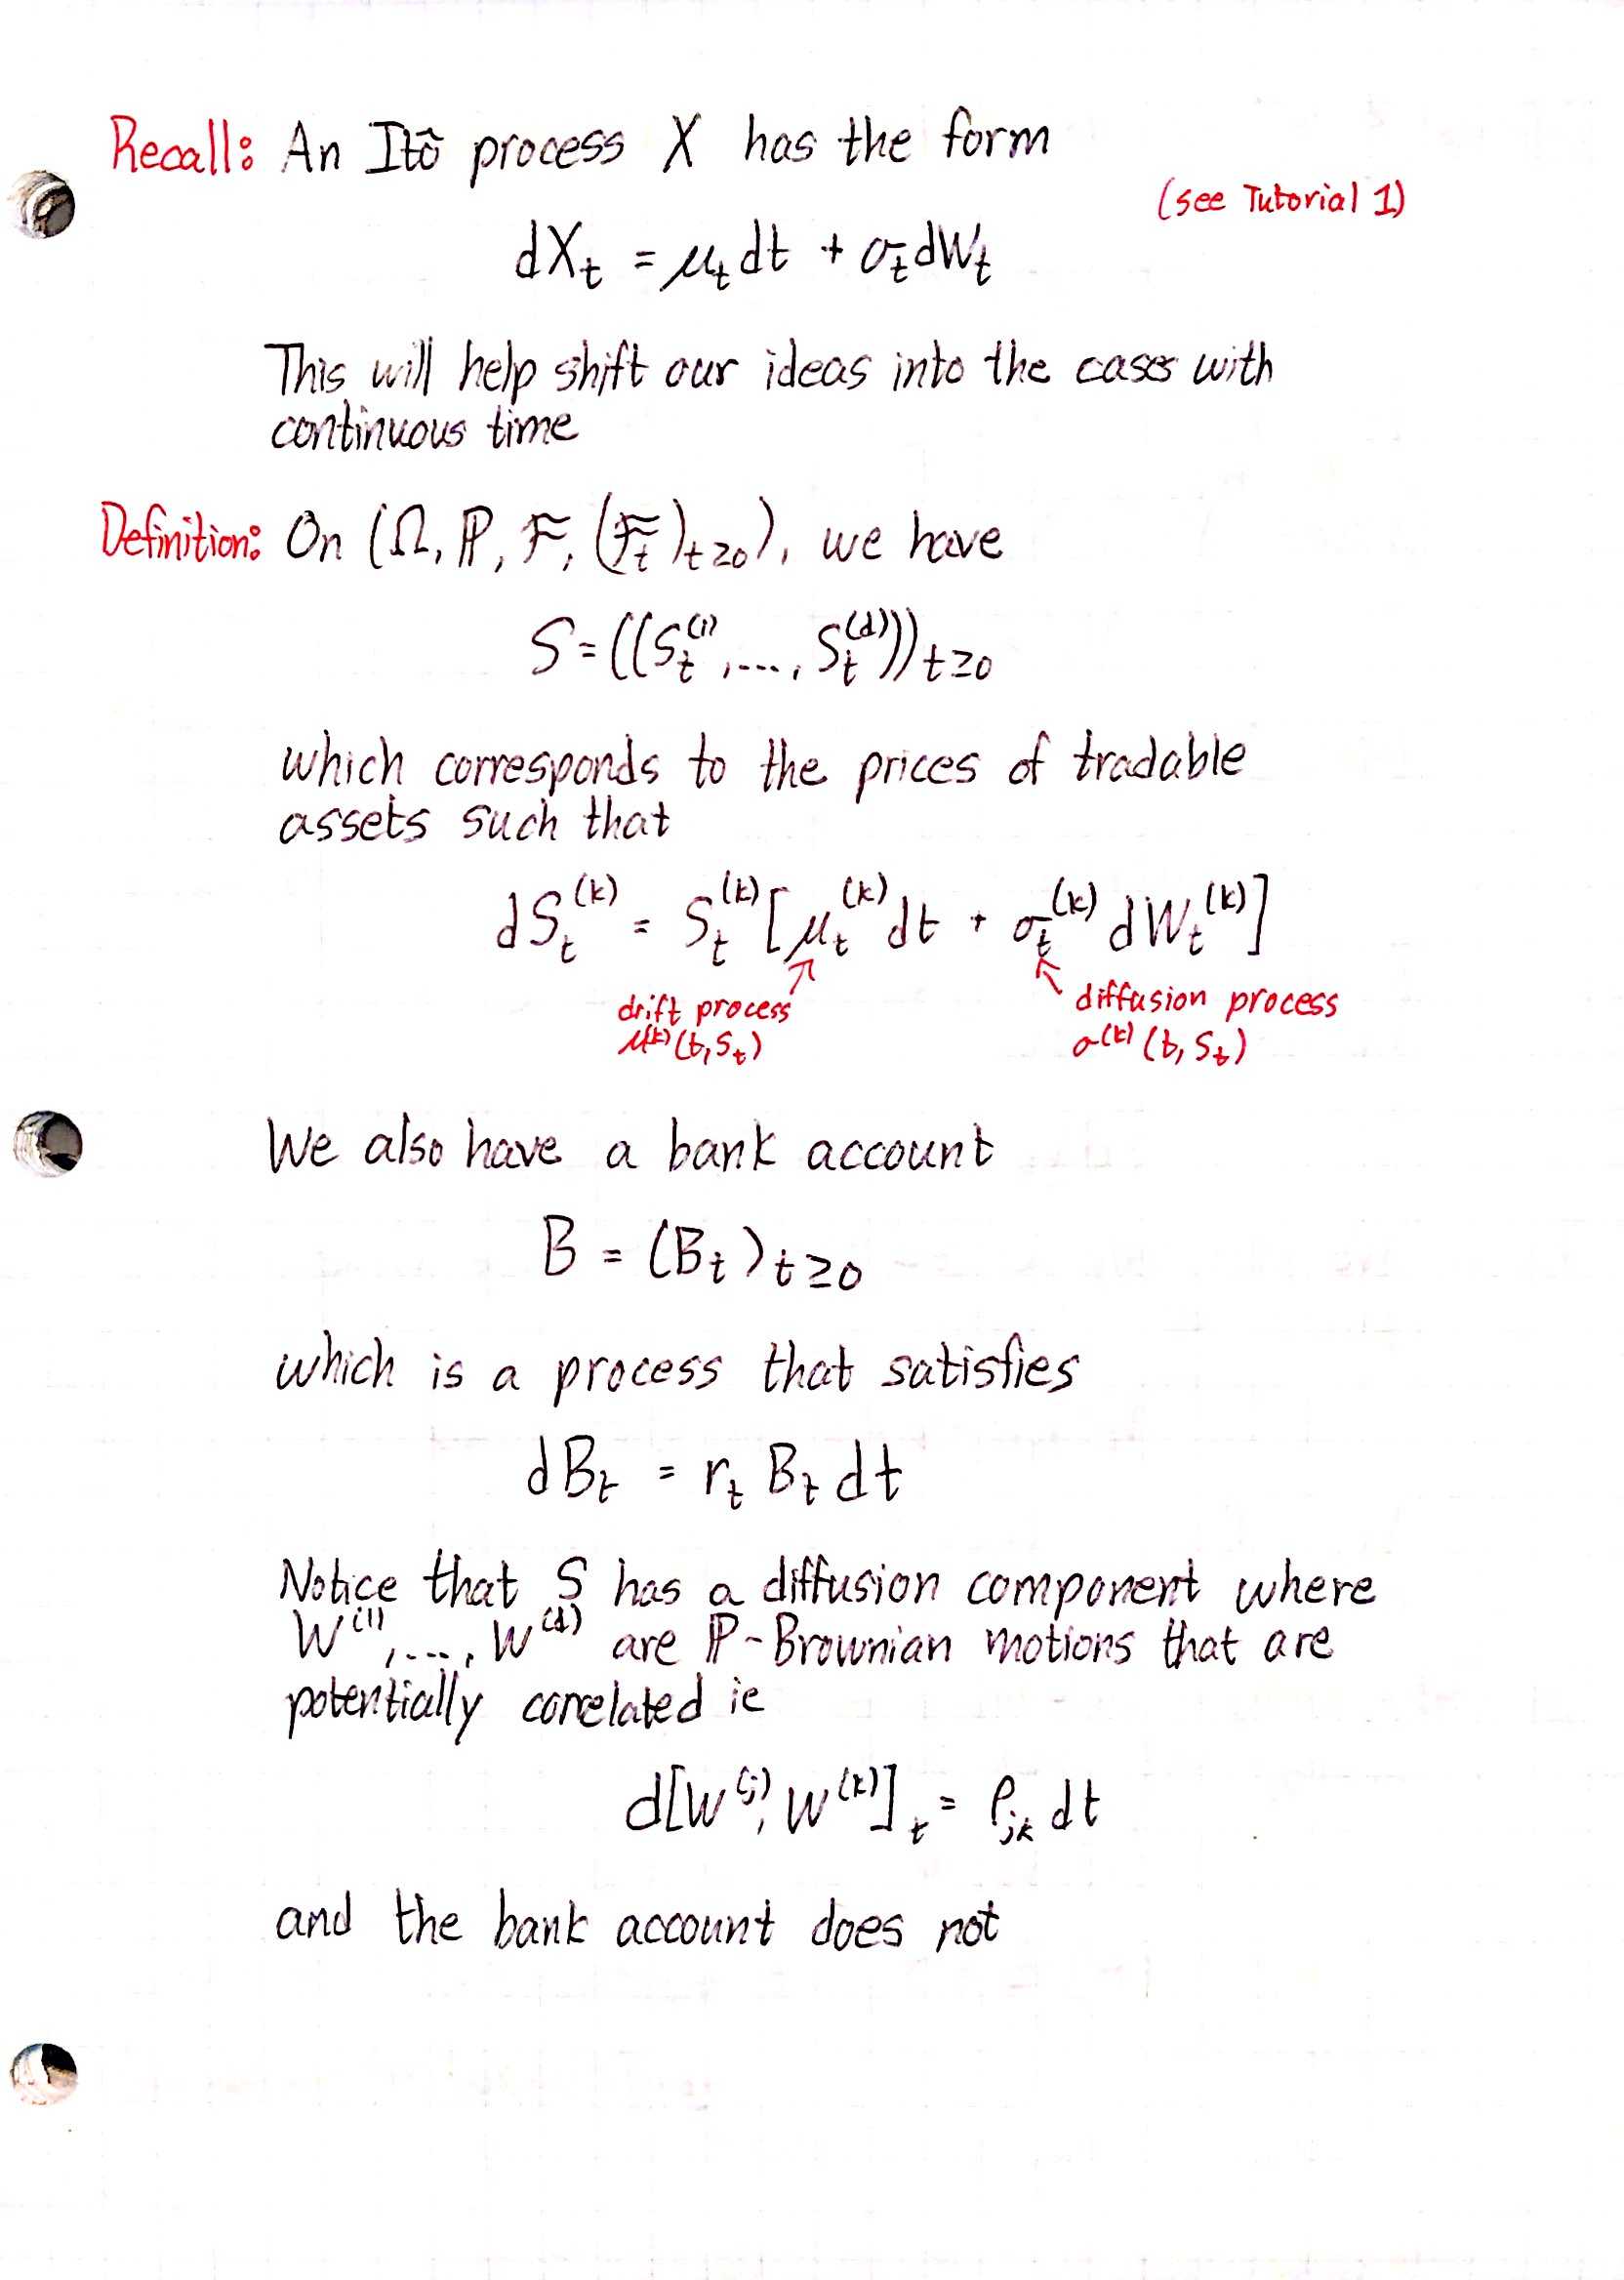 Recall: An Itô process X has the form
(see Tutorial 1)
dX_t = μ_t dt + σ_t dW_t
This will help shift our ideas into the cases with
continuous time
Definition: On (Ω, ℙ, ℱ, (ℱ_t)_{t≥0}), we have
S = ((S_t^{(1)}, ..., S_t^{(d)}))_{t≥0}
which corresponds to the prices of tradable
assets such that
dS_t^{(k)} = S_t^{(k)} [μ_t^{(k)} dt + σ_t^{(k)} dW_t^{(k)}]
drift process
μ^{(k)}(t, S_t)
diffusion process
σ^{(k)}(t, S_t)
We also have a bank account
B = (B_t)_{t≥0}
which is a process that satisfies
dB_t = r_t B_t dt
Notice that S has a diffusion component where
W^{(1)}, ..., W^{(d)} are ℙ-Brownian motions that are
potentially correlated ie
d[W^{(j)}, W^{(k)}]_t = ρ_{jk} dt
and the bank account does not